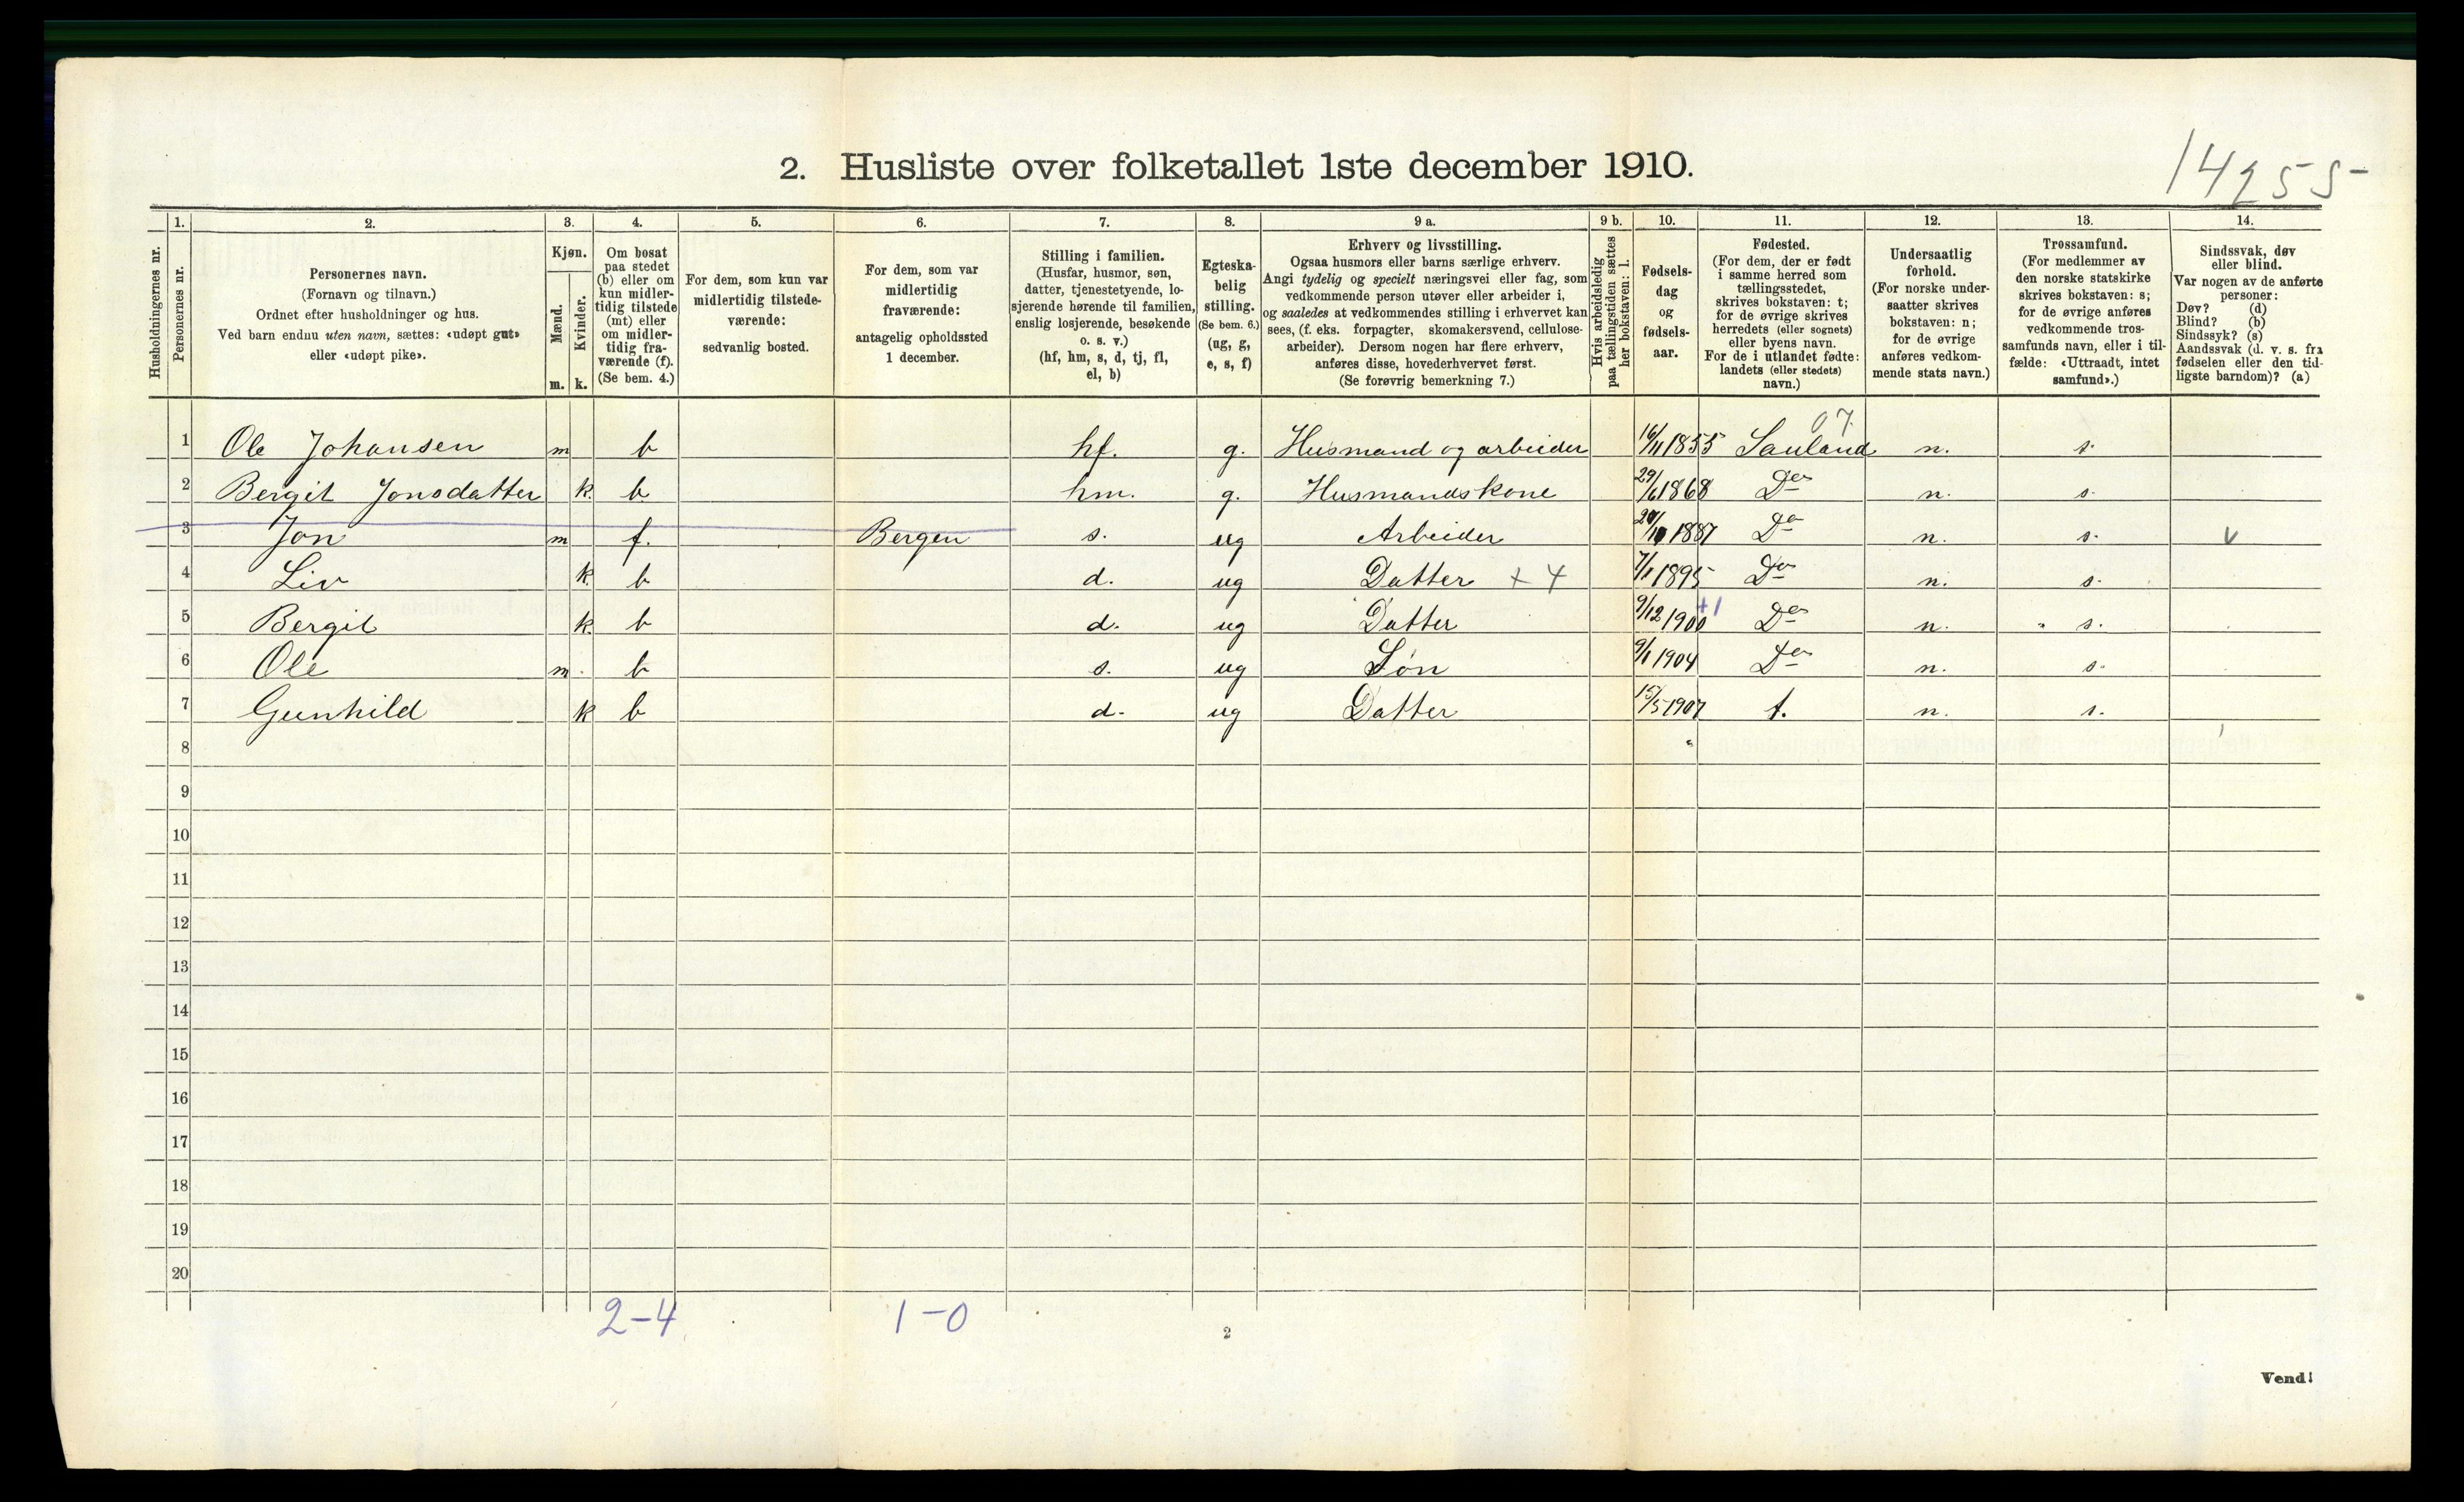 2. Husliste over folketallet 1ste december 1910.
14255-
Husholdningernes nr.
1. Personernes nr.
2. Personernes navn.
(Fornavn og tilnavn.)
Ordnet efter husholdninger og hus.
Ved barn endnu uten navn, sættes: «udøpt gut»
eller «udøpt pike».
3. Kjøn.
Mænd. m.
Kvinder. k.
4. Om bosat
paa stedet
(b) eller om
kun midler-
tidig tilstede
(mt) eller
om midler-
tidig fra-
værende (f).
(Se bem. 4.)
5. For dem, som kun var
midlertidig tilstede-
værende:
sedvanlig bosted.
6. For dem, som var
midlertidig
fraværende:
antagelig opholdssted
1 december.
7. Stilling i familien.
(Husfar, husmor, søn,
datter, tjenestetyende, lo-
sjerende hørende til familien,
enslig losjerende, besøkende
o. s. v.)
(hf, hm, s, d, tj, fl,
el, b)
8. Egteska-
belig
stilling.
(Se bem. 6.)
(ug, g,
e, s, f)
9 a. Erhverv og livsstilling.
Ogsaa husmors eller barns særlige erhverv.
Angi tydelig og specielt næringsvei eller fag, som
vedkommende person utøver eller arbeider i,
og saaledes at vedkommendes stilling i erhvervet kan
sees, (f. eks. forpagter, skomakersvend, cellulose-
arbeider). Dersom nogen har flere erhverv,
anføres disse, hovederhvervet først.
(Se forøvrig bemerkning 7.)
9 b. Hvis arbeidsledig
paa tællingstiden sættes
her bokstaven: l.
10. Fødsels-
dag
og
fødsels-
aar.
11. Fødested.
(For dem, der er født
i samme herred som
tællingsstedet,
skrives bokstaven: t;
for de øvrige skrives
herredets (eller sognets)
eller byens navn.
For de i utlandet fødte:
landets (eller stedets)
navn.)
12. Undersaatlig
forhold.
(For norske under-
saatter skrives
bokstaven: n;
for de øvrige
anføres vedkom-
mende stats navn.)
13. Trossamfund.
(For medlemmer av
den norske statskirke
skrives bokstaven: s;
for de øvrige anføres
vedkommende tros-
samfunds navn, eller i til-
fælde: «Uttraadt, intet
samfund».)
14. Sindssvak, døv
eller blind.
Var nogen av de anførte
personer:
Døv? (d)
Blind? (b)
Sindssyk? (s)
Aandssvak (d. v. s. fra
fødselen eller den tid-
ligste barndom)? (a)
07.
1 Ole Johansen m b hf. g. Husmand og arbeider 16/11 1855 Sauland n. s.
2 Bergit Jonsdatter k. b hm. g. Husmandskone 29/6 1868 Do n. s.
3 Jon m f. Bergen s. ug Arbeider 1887 Do n. s. v
4 Liv k. b d. ug Datter + 4 7/1 1895 Do n. s.
+1
5 Bergit k. b d. ug Datter 9/12 1900 Do n. s.
6 Ole m. b s. ug Søn 9/1 1904 Do n. s.
7 Gunhild k b d. ug Datter 15/5 1907 t. n. s.
8
9
10
11
12
13
14
15
16
17
18
19
20
2-4 1-0
2
Vend!